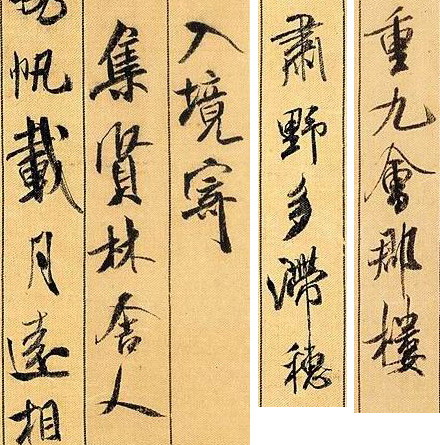 重九會郡樓
肅野多滯穗
入境寄
集賢林舍人
帆載月遠相